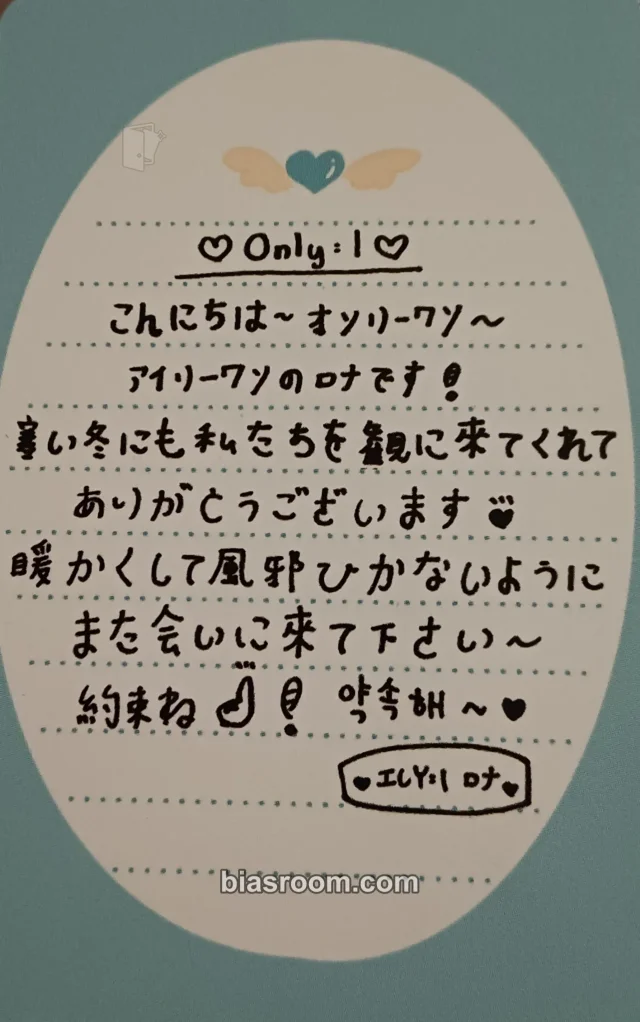 ♡Only:1♡
こんにちは~オンリーワン~
アイリーワンのロナです!
寒い冬にも私たちを観に来てくれて
ありがとうございます♥
暖かくして風邪ひかないように
また会いに來て下さい~
約束ね!약속해~♥
♥ILY:1 ロナ♥
biasroom.com